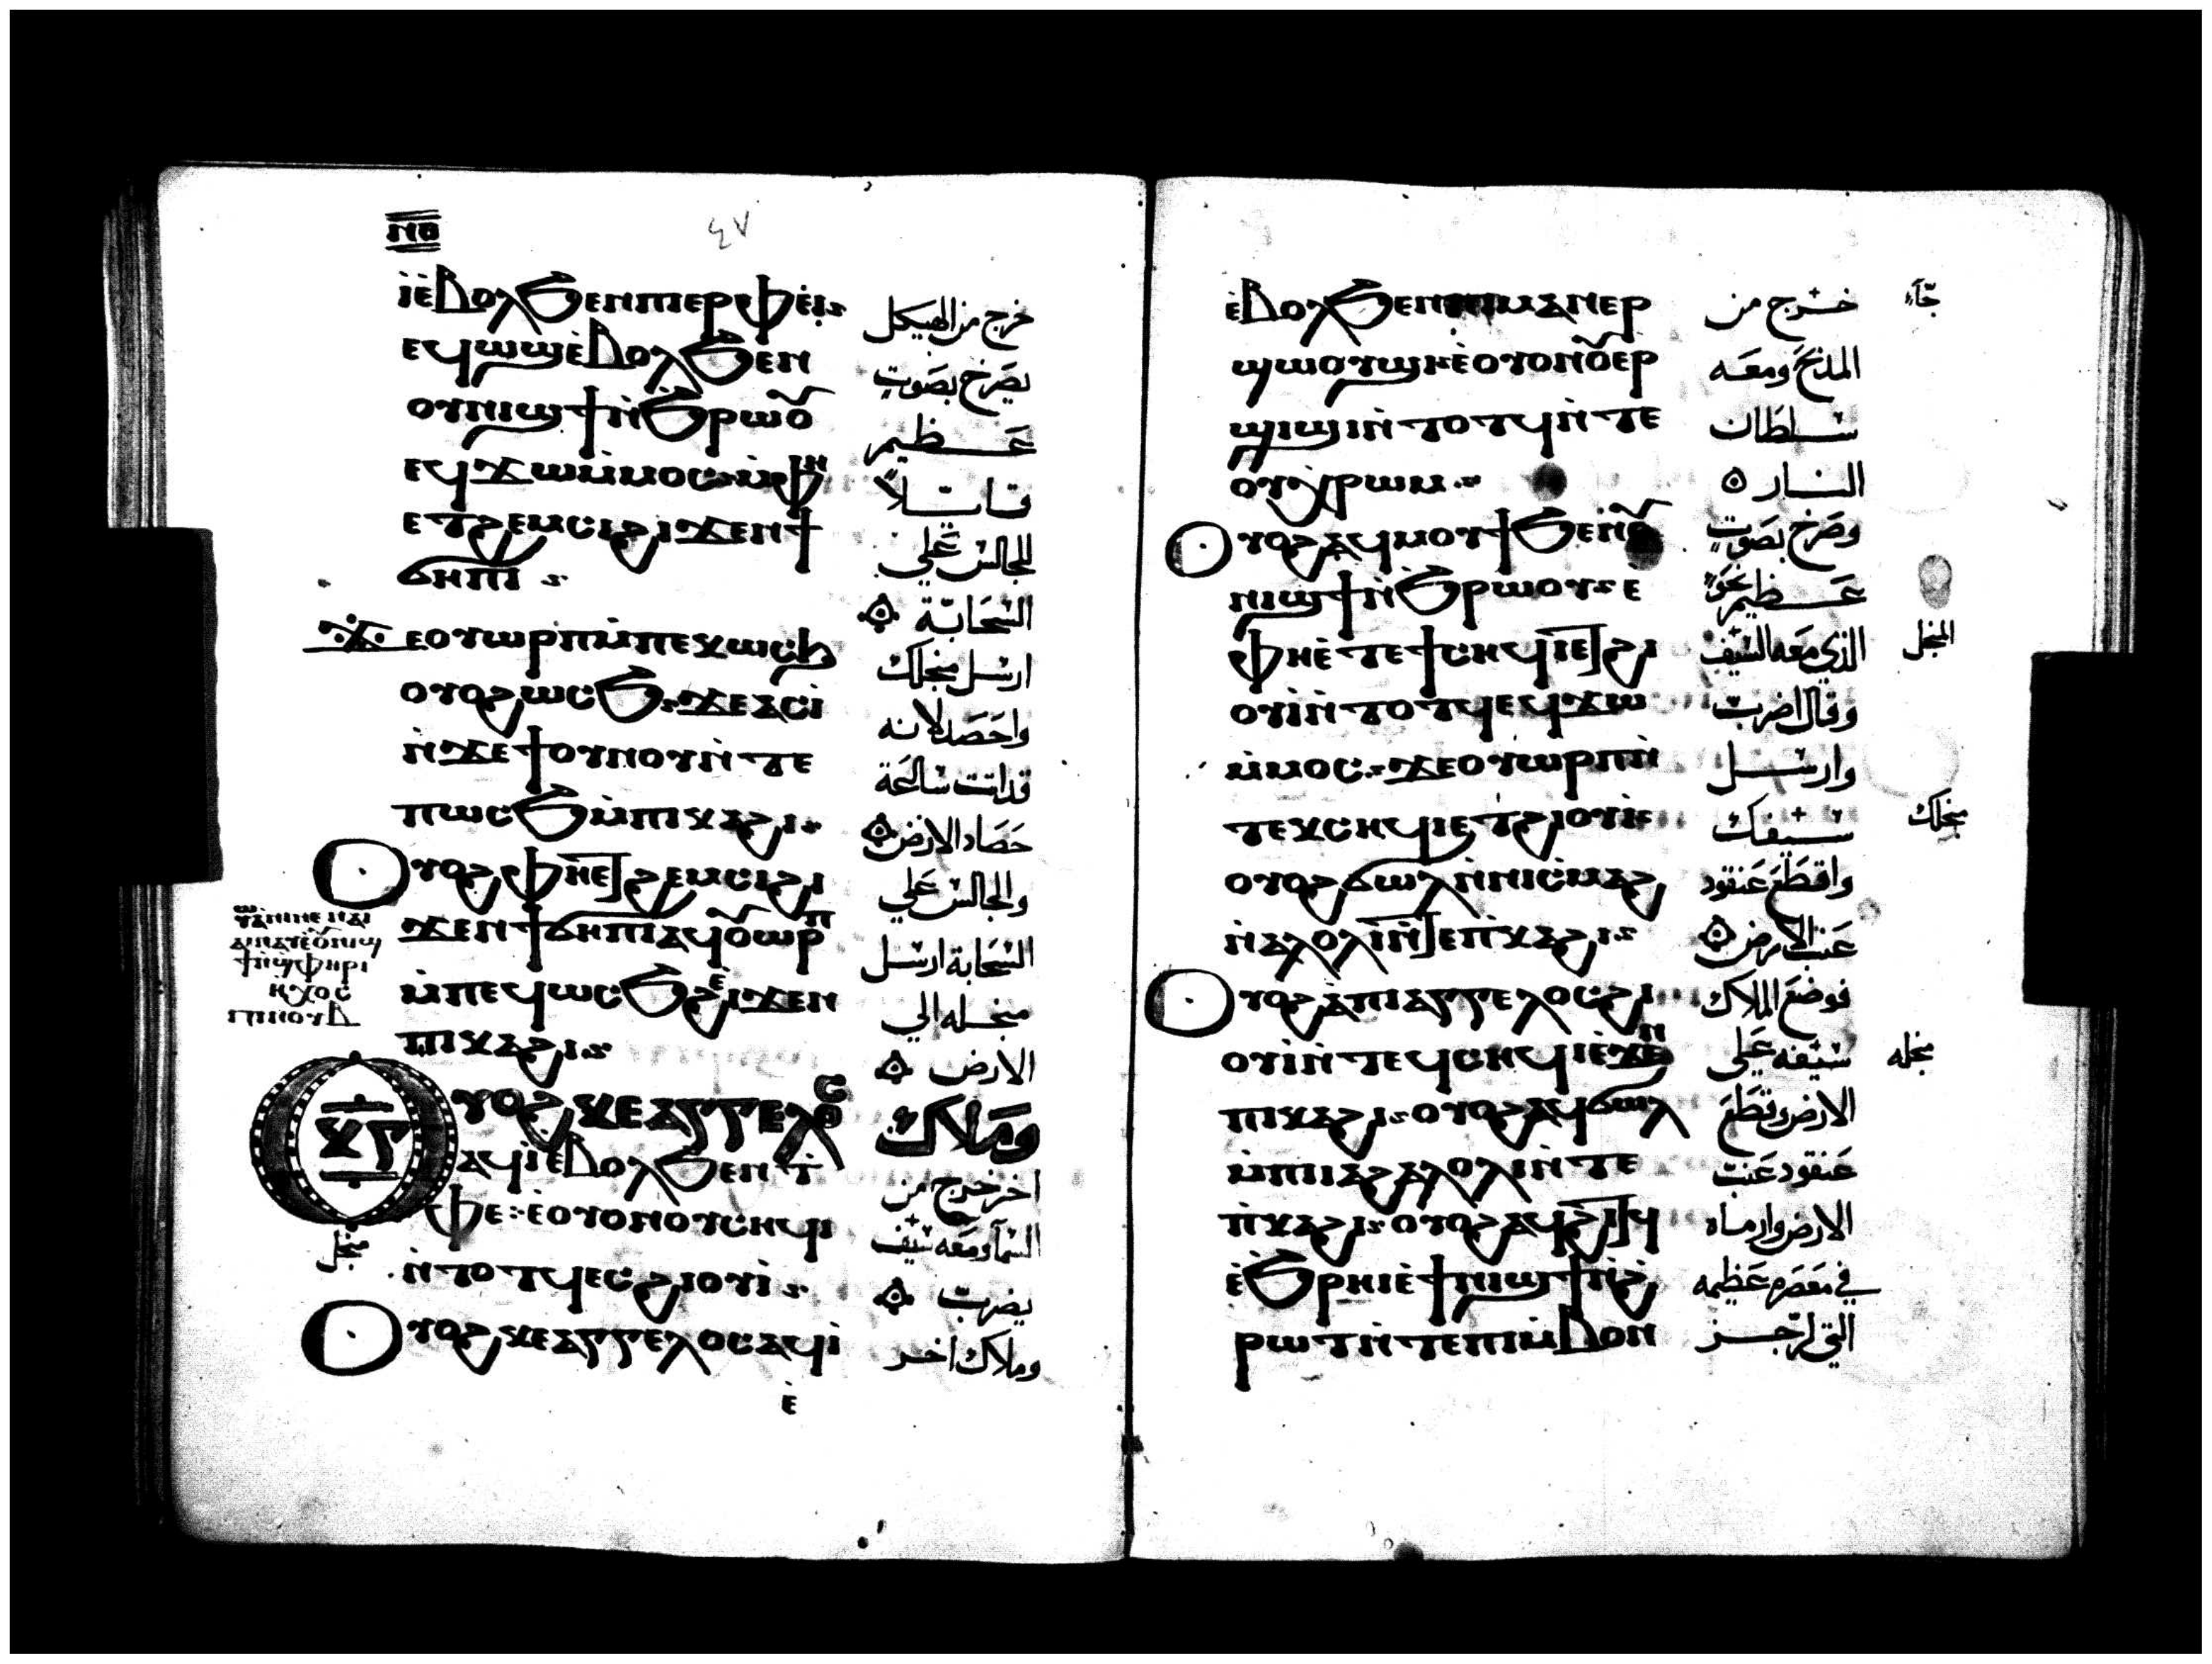 ⲛⲑ
٤٧
ⲓ̀ⲉ̀ⲃⲟⲗϧⲉⲛⲡⲉⲣⲫⲉⲓ
خرج من الهيكل
ⲉϥⲱϣⲉ̀ⲃⲟⲗϧⲉⲛ
يصرخ بصوت
ⲟⲩⲛⲓϣϯⲛ̀ϧⲣⲱⲟ̅
عظيم
ⲉϥϫⲱⲙ̀ⲙⲟⲥ ⲙ̀ⲫⲏ
قائلاً
ⲉⲧϩⲉⲙⲥⲓϩⲓϫⲉⲛϯ
للجالس علي
ϭⲏⲡⲓ
السحابة
ϫⲉⲟⲩⲱⲣⲡⲙ̀ⲡⲉⲭⲱⲥϧ
ارسل منجلك
ⲟⲩⲟϩⲱⲥϧ ϫⲉⲁⲥⲓ̀
واحصد لانه
ⲛ̀ϫⲉϯⲟⲩⲛⲟⲩⲛ̀ⲧⲉ
قد اتت ساعة
ⲡⲱⲥϧⲙ̀ⲡⲓⲕⲁϩⲓ
حصاد الارض
ⲟⲩⲟϩⲫⲏⲉⲧϩⲉⲙⲥⲓϩⲓ
والجالس علي
ϫⲉⲛϯϭⲏⲡⲓⲁϥⲟ̅ⲱⲣⲡ
السحابة ارسل
ⲙ̀ⲡⲉϥⲱⲥϧϩⲓϫⲉⲛ
منجله الي
ⲡⲓⲕⲁϩⲓ
الارض
ⲕ̅ⲅ̅
ⲟⲩⲟϩⲕⲉⲁⲅⲅⲉⲗⲟⲥ
وملاك
ⲁϥⲓ̀ⲉ̀ⲃⲟⲗϧⲉⲛⲧ̀
اخر خرج من
ⲫⲉ ⲉ̀ⲟⲩⲟⲛⲟⲩⲥⲏϥⲓ
السماء ومعه سيف
منجل
ⲛ̀ⲧⲟⲧϥⲉⲥϩⲓⲟⲩⲓ̀
يضرب
ⲟⲩⲟϩⲕⲉⲁⲅⲅⲉⲗⲟⲥⲁϥⲓ̀
وملاك اخر
ⲉ̀
ⲉ̀ⲃⲟⲗϧⲉⲛⲡⲓⲙⲁⲛⲉⲣ
خرج من
ϣⲱⲟⲩϣⲓ ⲉ̀ⲟⲩⲟⲛⲟ̅ⲉⲣ
المذبح ومعه
ϣⲓϣⲓⲛ̀ⲧⲟⲧϥⲛ̀ⲧⲉ
سلطان
ⲟⲩⲭ̀ⲣⲱⲙ
النار
ⲟⲩⲟϩⲁϥⲙⲟⲩϯϧⲉⲛⲟ̅
وصرخ بصوت
ⲛⲓϣϯⲛ̀ϧⲣⲱⲟⲩ ⲉ
عظيم نحو
ⲫⲏⲉ̀ⲧⲉϯⲥⲏϥⲓⲉⲧϩⲓ
الذي معه السيف
المنجل
ⲟⲩⲓ̀ⲛ̀ⲧⲟⲧϥⲉϥϫⲱ
وقال اضرب
ⲙ̀ⲙⲟⲥ ϫⲉⲟⲩⲱⲣⲡⲛ̀
وارسل
ⲧⲉⲕⲥⲏϥⲓⲉⲧϩⲓⲟⲩⲓ̀
سيفك
منجلك
ⲟⲩⲟϩϭⲱⲗⲛ̀ⲛⲓⲥ̀ⲙⲁϩ
واقطع عنقود
ⲛ̀ⲁⲗⲟⲗⲓⲛ̀ⲧⲉⲡ̀ⲕⲁϩⲓ
عنب الارض
ⲟⲩⲟϩⲁ̀ⲡⲓⲁⲅⲅⲉⲗⲟⲥϩⲓ
فوضع الملاك
ⲟⲩⲓ̀ⲛ̀ⲧⲉϥⲥⲏϥⲓⲉ̀ϫⲉⲛ
سيفه علي
منجله
ⲡⲓⲕⲁϩⲓ ⲟⲩⲟϩⲁϥϭⲱⲗ
الارض وقطع
ⲙ̀ⲡⲓⲁϩⲁⲗⲟⲗⲓⲛ̀ⲧⲉ
عنقود عنب
ⲡ̀ⲕⲁϩⲓ ⲟⲩⲟϩⲁϥϩⲓⲧϥ
الارض وارماه
ⲉ̀ϧⲣⲏⲓⲉ̀ϯⲛⲓϣϯⲛ̀ϩ
في معصره عظيمه
ⲣⲱⲧⲛ̀ⲧⲉⲡⲓⲙ̀ⲃⲟⲛ
التي لرجز